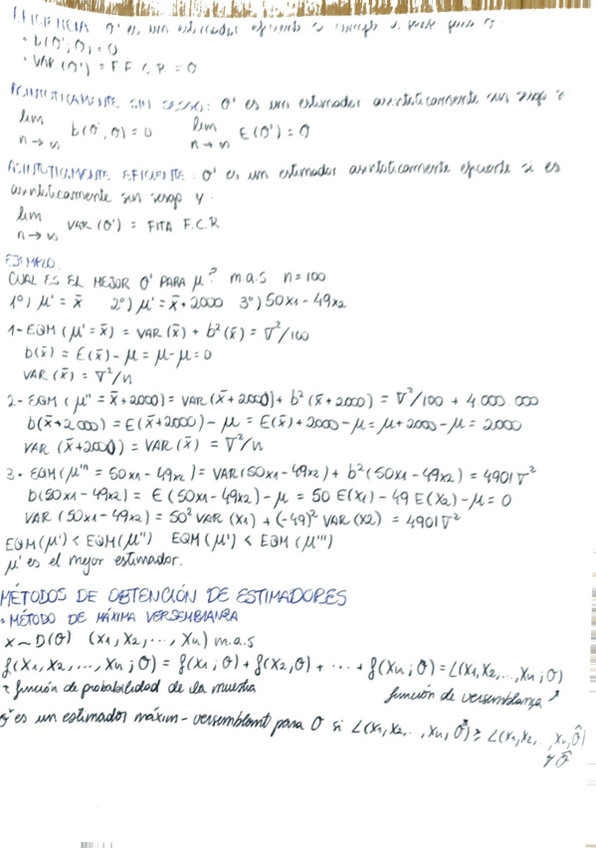 EFICIENCIA: O' es un estimador eficiente
• b(O', O) = 0
• VAR(O') = F.F.C.R. = 0
ASINTÓTICAMENTE SIN SESGO: O' es un estimador asintóticamente sin sesgo
lim n→∞ b(O', O) = 0 lim n→∞ E(O') = O
ASINTÓTICAMENTE EFICIENTE: O' es un estimador asintóticamente eficiente si es
asintóticamente sin sesgo y
lim n→∞ VAR(O') = FITA F.C.R
EJEMPLO
CUAL ES EL MEJOR O' PARA μ? m.a.s n=100
1º) μ' = x̄ 2º) μ' = x̄+2000 3º) 50x1 - 49x2
1- EQM(μ' = x̄) = VAR(x̄) + b²(x̄) = ∇²/100
b(x̄) = E(x̄) - μ = μ - μ = 0
VAR(x̄) = ∇²/n
2- EQM(μ'' = x̄+2000) = VAR(x̄+2000) + b²(x̄+2000) = ∇²/100 + 4 000 000
b(x̄+2000) = E(x̄+2000) - μ = E(x̄) + 2000 - μ = μ + 2000 - μ = 2000
VAR(x̄+2000) = VAR(x̄) = ∇²/n
3. EQM(μ''' = 50x1 - 49x2) = VAR(50x1 - 49x2) + b²(50x1 - 49x2) = 4901∇²
b(50x1 - 49x2) = E(50x1 - 49x2) - μ = 50 E(x1) - 49 E(x2) - μ = 0
VAR(50x1 - 49x2) = 50² VAR(x1) + (-49)² VAR(x2) = 4901∇²
EQM(μ') < EQM(μ'') EQM(μ') < EQM(μ''')
μ' es el mejor estimador.
MÉTODOS DE OBTENCIÓN DE ESTIMADORES
• MÉTODO DE MÁXIMA VERSEMBLANÇA
x ~ D(O) (x1, x2, ..., xn) m.a.s
f(x1, x2, ..., xn; O) = f(x1; O) + f(x2, O) + ... + f(xn; O) = L(x1, x2, ..., xn; O)
función de probabilidad de la muestra función de versemblança ↗
es un estimador máxim-versemblant para O si L(x1, x2, .. , xn, Ô) ≥ L(x1, x2, .. , xn, Ô)
∀ Ô